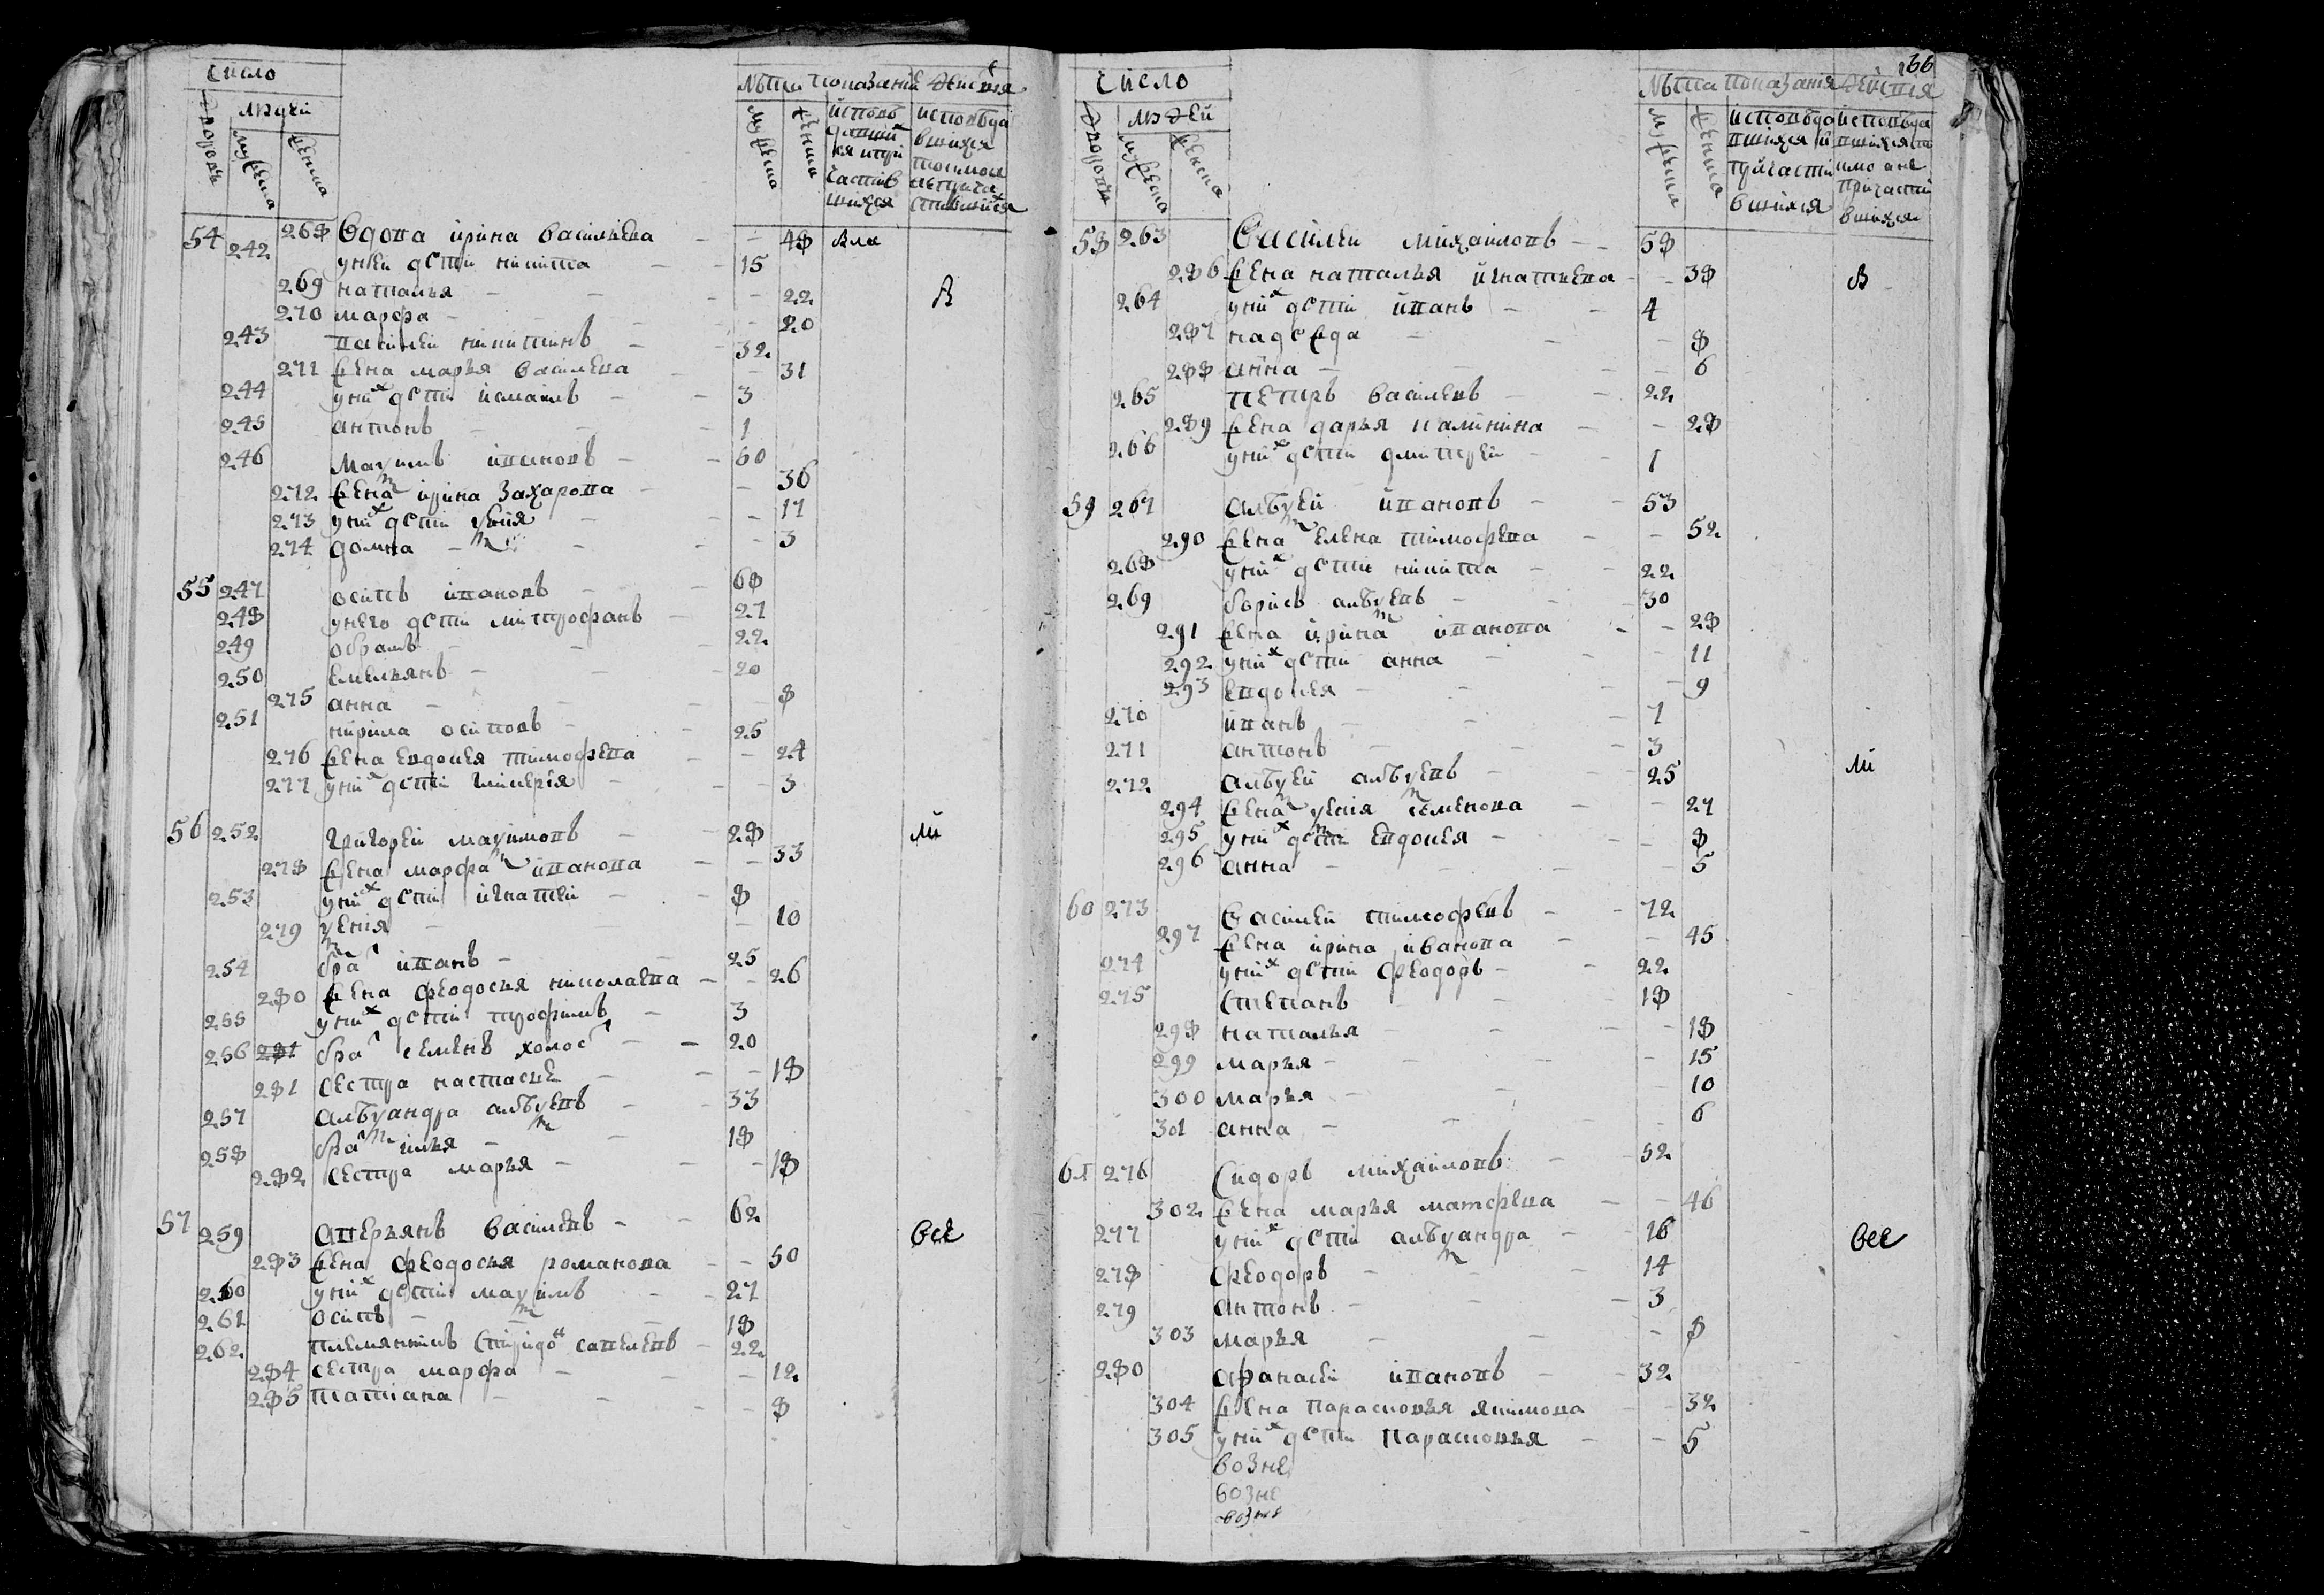 Число
Людей
Дворовъ
Мужеска
Женска
Лѣта
Показаніе Действія
Мужеска
Женска
исповѣдавшихся и причастившихся
исповѣдавшихся токмо а не причастившихся
54 268 Вдова ирина васильева - - 48 вла
242 у неи дети никита - - 15
269 наталья - - - 22 в
270 марфа - - - 20
243 василеи никитинъ - - 32
271 жена марья василева - - 31
244 у них дети исмаилъ - - 3
245 антонъ - - 1
246 Маѯимъ ивановъ - - 60
272 жена ирина захарова - - 36
273 у них дети 17
274 домна - - - 3
55 247 осипъ ивановъ - - 68
248 у него дети митрофанъ - 27
249 - - 22
250 емельянъ - - 20
275 анна - - - 8
251 кирила осиповъ - - 25
276 жена евдокея тимофева - - 24
277 у них дети - - 3
56 252 Григореи маѯимовъ - - 28 ли
278 жена марфа иванова - - 33
253 у них дети игнатеи - - 8
279 ѯения - - 10
254 брат иванъ - - 25
280 жена феодосья николаева - - 26
255 у них дети трофимъ - 3
256 281 брат семенъ холост - - 20
281 сестра настасье - - 18
257 алеѯандра алеѯевъ - - 33
258 брат илья - - 18
282 сестра марья - - - 18
57 259 аверьянъ василевъ - - 62 все
283 жена феодосья романова - - 50
260 у них дети маѯимъ - - 27
261 осипъ - - - 18
262 племянникъ спиридон савелевъ - 22
284 сестра марфа - - - 12
285 татиана - - - 8
166
Число
Людей
Дворовъ
Мужеска
Женска
Лѣта
Показанія Действія
Мужеска
Женска
исповѣдавшихся и причастившихся
исповѣдавшихся токмо а не причастившихся
58 263 Василеи михаиловъ - - 58
286 жена наталья игнатьева - - 38 в
264 у них дети иванъ - - 4
287 надежда - - - 8
288 анна - - - 6
265 петръ василевъ - - 22
289 жена дарья калинина - - 28
266 у них дети дмитреи - - 1
59 267 алеѯеи ивановъ - - 53
290 жена елена тимофева - - 52
268 у них дети никита - - 22
269 борисъ алеѯевъ - - 30
291 жена ирина иванова - - 28
292 у них дети анна - - - 11
293 евдокея - - - 9
270 иванъ - - - 7
271 антонъ - - - 3
272 алеѯеи алеѯевъ - - 25 ли
294 жена ѯения семенова - - 27
295 у них дети евдокея - - 8
296 анна - - - 5
60 273 василеи тимофевъ - - 72
297 жена ирина иванова - - 45
274 у них дети феодоръ - - 22
275 степанъ - - 18
298 наталья - - - 18
299 марья - - - 15
300 марья - - - 10
301 анна - - - 6
61 276 Сидоръ михаиловъ - - 52
302 жена марья матфева - - 46
277 у них дети алеѯандра - - 16 все
278 феодоръ - - - 14
279 антонъ - - - 3
303 марья - - - 8
280 афанасеи ивановъ - - 32
304 жена парасковья якимова - - 32
305 у них дети парасковья - - 5
возне
возне
возне